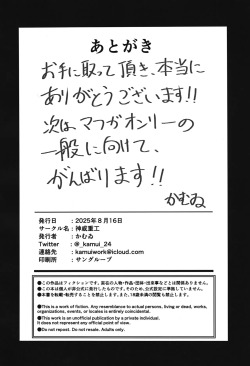 あとがき
お手に取って頂き、本当に
ありがとうございます!!
次はマフガオンリーの
一般に向けて、
がんばります!!
かむゐ
発行日　：2025年8月16日
サークル名：神威重工
発行者　：かむゐ
Twitter　：@_kamui_24
連絡先　：kamuiwork@icloud.com
印刷所　：サングループ
●この作品はフィクションです。実在の人物・作品・団体・出来事などとは関係ありません。
●この本は個人が非公式に発行したものです。そのため、公式設定に準拠していません。
●本書を転載・転売することを禁止します。また、18歳未満の閲覧も禁止します。
●This is a work of fiction. Any resemblance to actual persons, living or dead, works,
organizations, events, or locales is entirely coincidental.
●This work is an unofficial publication by a private individual.
It does not represent any official point of view.
●Do not repost. Do not resale. Adults only.